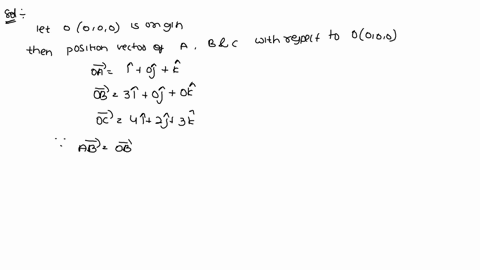 Sol :-
let O (0,0,0) is origin
then position vector of A, B & C with respect to O(0,0,0)
$\vec{OA} = \hat{i} + 0\hat{j} + \hat{k}$
$\vec{OB} = 3\hat{i} + 0\hat{j} + 0\hat{k}$
$\vec{OC} = 4\hat{i} + 2\hat{j} + 3\hat{k}$
∵ $\vec{AB} = \vec{OB}$